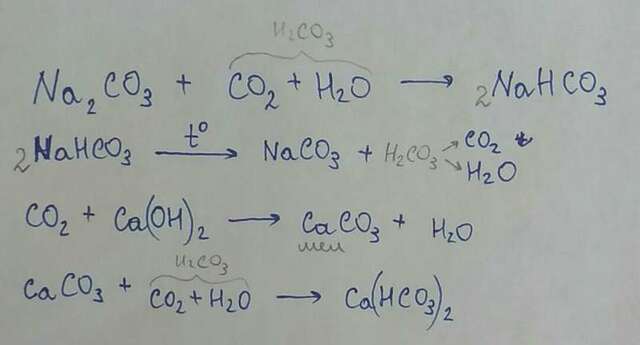 H₂CO₃
Na₂CO₃ + CO₂ + H₂O → 2NaHCO₃
2NaHCO₃ t° → NaCO₃ + H₂CO₃ ↗ CO₂
↘ H₂O
CO₂ + Ca(OH)₂ → CaCO₃ + H₂O
мел
H₂CO₃
CaCO₃ + CO₂ + H₂O → Ca(HCO₃)₂